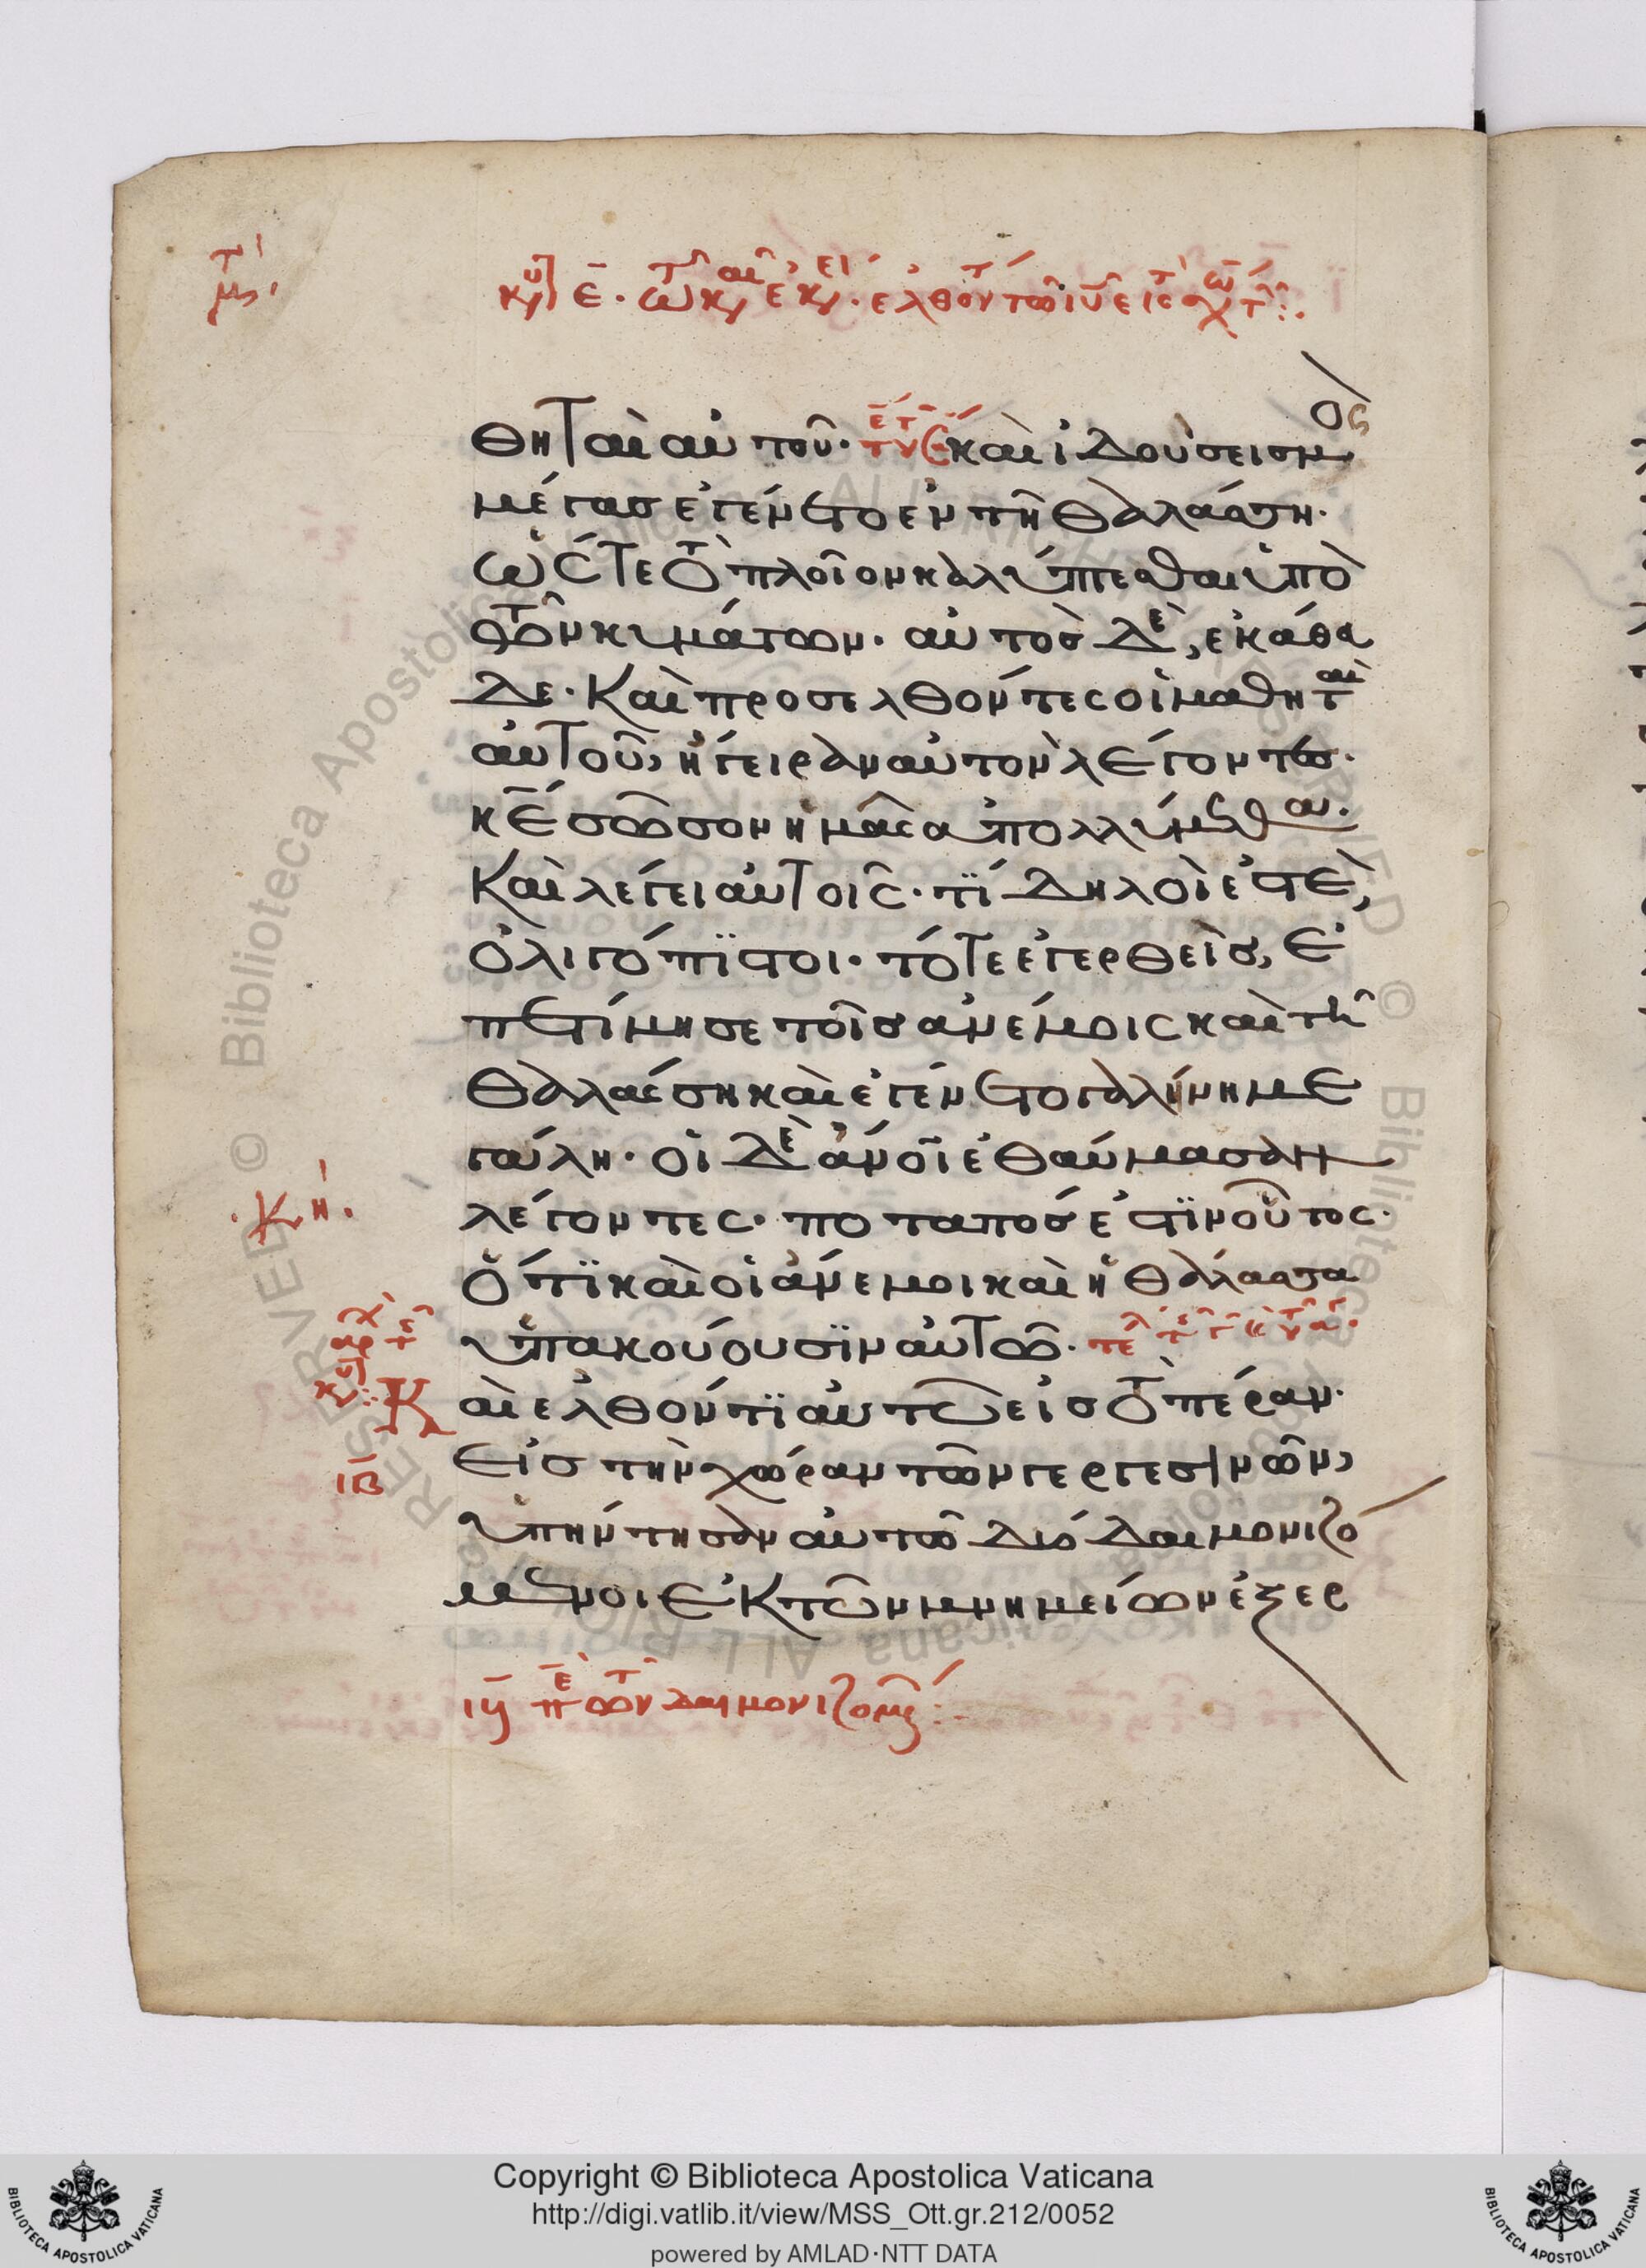 κυ ε. τω κυ εκει. ελθοντ τω ιυ εις
θηταὶ αὐτοῦ. καὶ ἰδοὺ σεισμὸς
μέγασ ἐγένετο ἐν τῆ θαλάσση.
ὥστε τὸ πλοῖον καλύπτεσθαι ὑπὸ
τῶν κυμάτων. αὐτὸσ δὲ, ἐκάθευ
δε. Καὶ προσελθόντες οἱ μαθηταὶ
αὐτοῦ, ἤγειραν αὐτὸν λέγοντες.
κέ σῶσον ἡμᾶς ἀπολλύμεθα.
Καὶ λέγει αὐτοῖς. τί δηλοὶ ἐστὲ,
ὀλιγόπιστοι. τότε ἐγερθεὶσ, ἐ
πετίμησε τοῖσ ἀνέμοις καὶ τῆ
θαλάσση καὶ ἐγένετο γαλίνη με
γάλη. οἱ δὲ ἄνοι ἐθαύμασαν
λέγοντες. ποταπόσ ἐστϊν οὗτος.
ὅτϊ καὶ οἱ ἄνεμοι καὶ ἡ θάλασσα
ὑπακούουσϊν αὐτῶ.
Καὶ ἐλθόντϊ αὐτῶ εἰσ τὸ πέραν.
εἰσ τὴν χώραν τῶν γεργεσινῶν,
ὑπήντησαν αὐτῶ δύο δαιμονιζό
μενοι ἐκ τῶν μνημείων ἐξερ
κη.
ιβ
ιγ πε τῶν δαιμονιζομέ
Copyright © Biblioteca Apostolica Vaticana
http://digi.vatlib.it/view/MSS_Ott.gr.212/0052
powered by AMLAD·NTT DATA
BIBLIOTECA APOSTOLICA VATICANA
BIBLIOTECA APOSTOLICA VATICANA